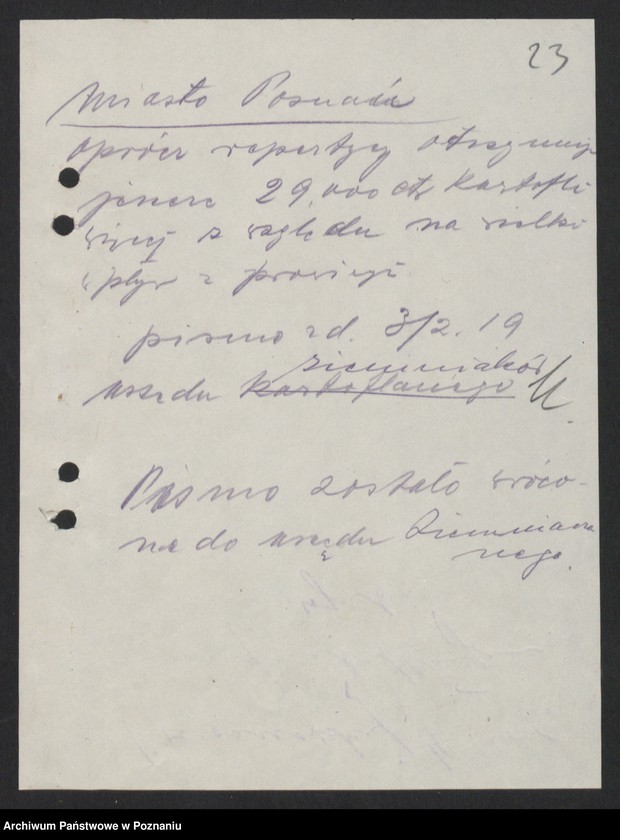 23
Miasto Poznań
oprócz repartycyj otrzymuje
jeszcze 29,000 ctr kartofli
więcej z względu na wielki
wpływ z prowincji.
pismo z d. 3/2. 19
ziemniaków
urzędu kartoflanego
Pismo zostało wróco-
ne do urzędu Ziemniacza
nego.
Archiwum Państwowe w Poznaniu